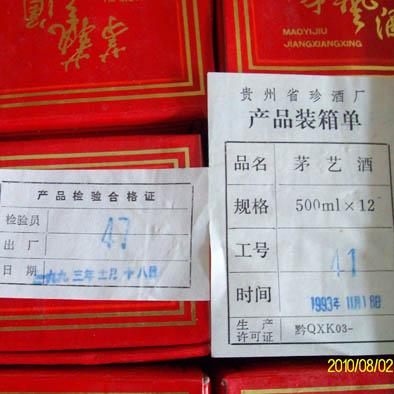 茅艺酒
MAOYIJIU
JIANGXIANGXING
茅艺酒
贵州省珍酒厂
产品装箱单
品名 茅艺酒
规格 500ml×12
工号 41
时间 1993年11月18日
生产许可证 黔QXK03-
产品检验合格证
检验员 47
出厂日期 一九九三年十一月十八日
2010/08/02